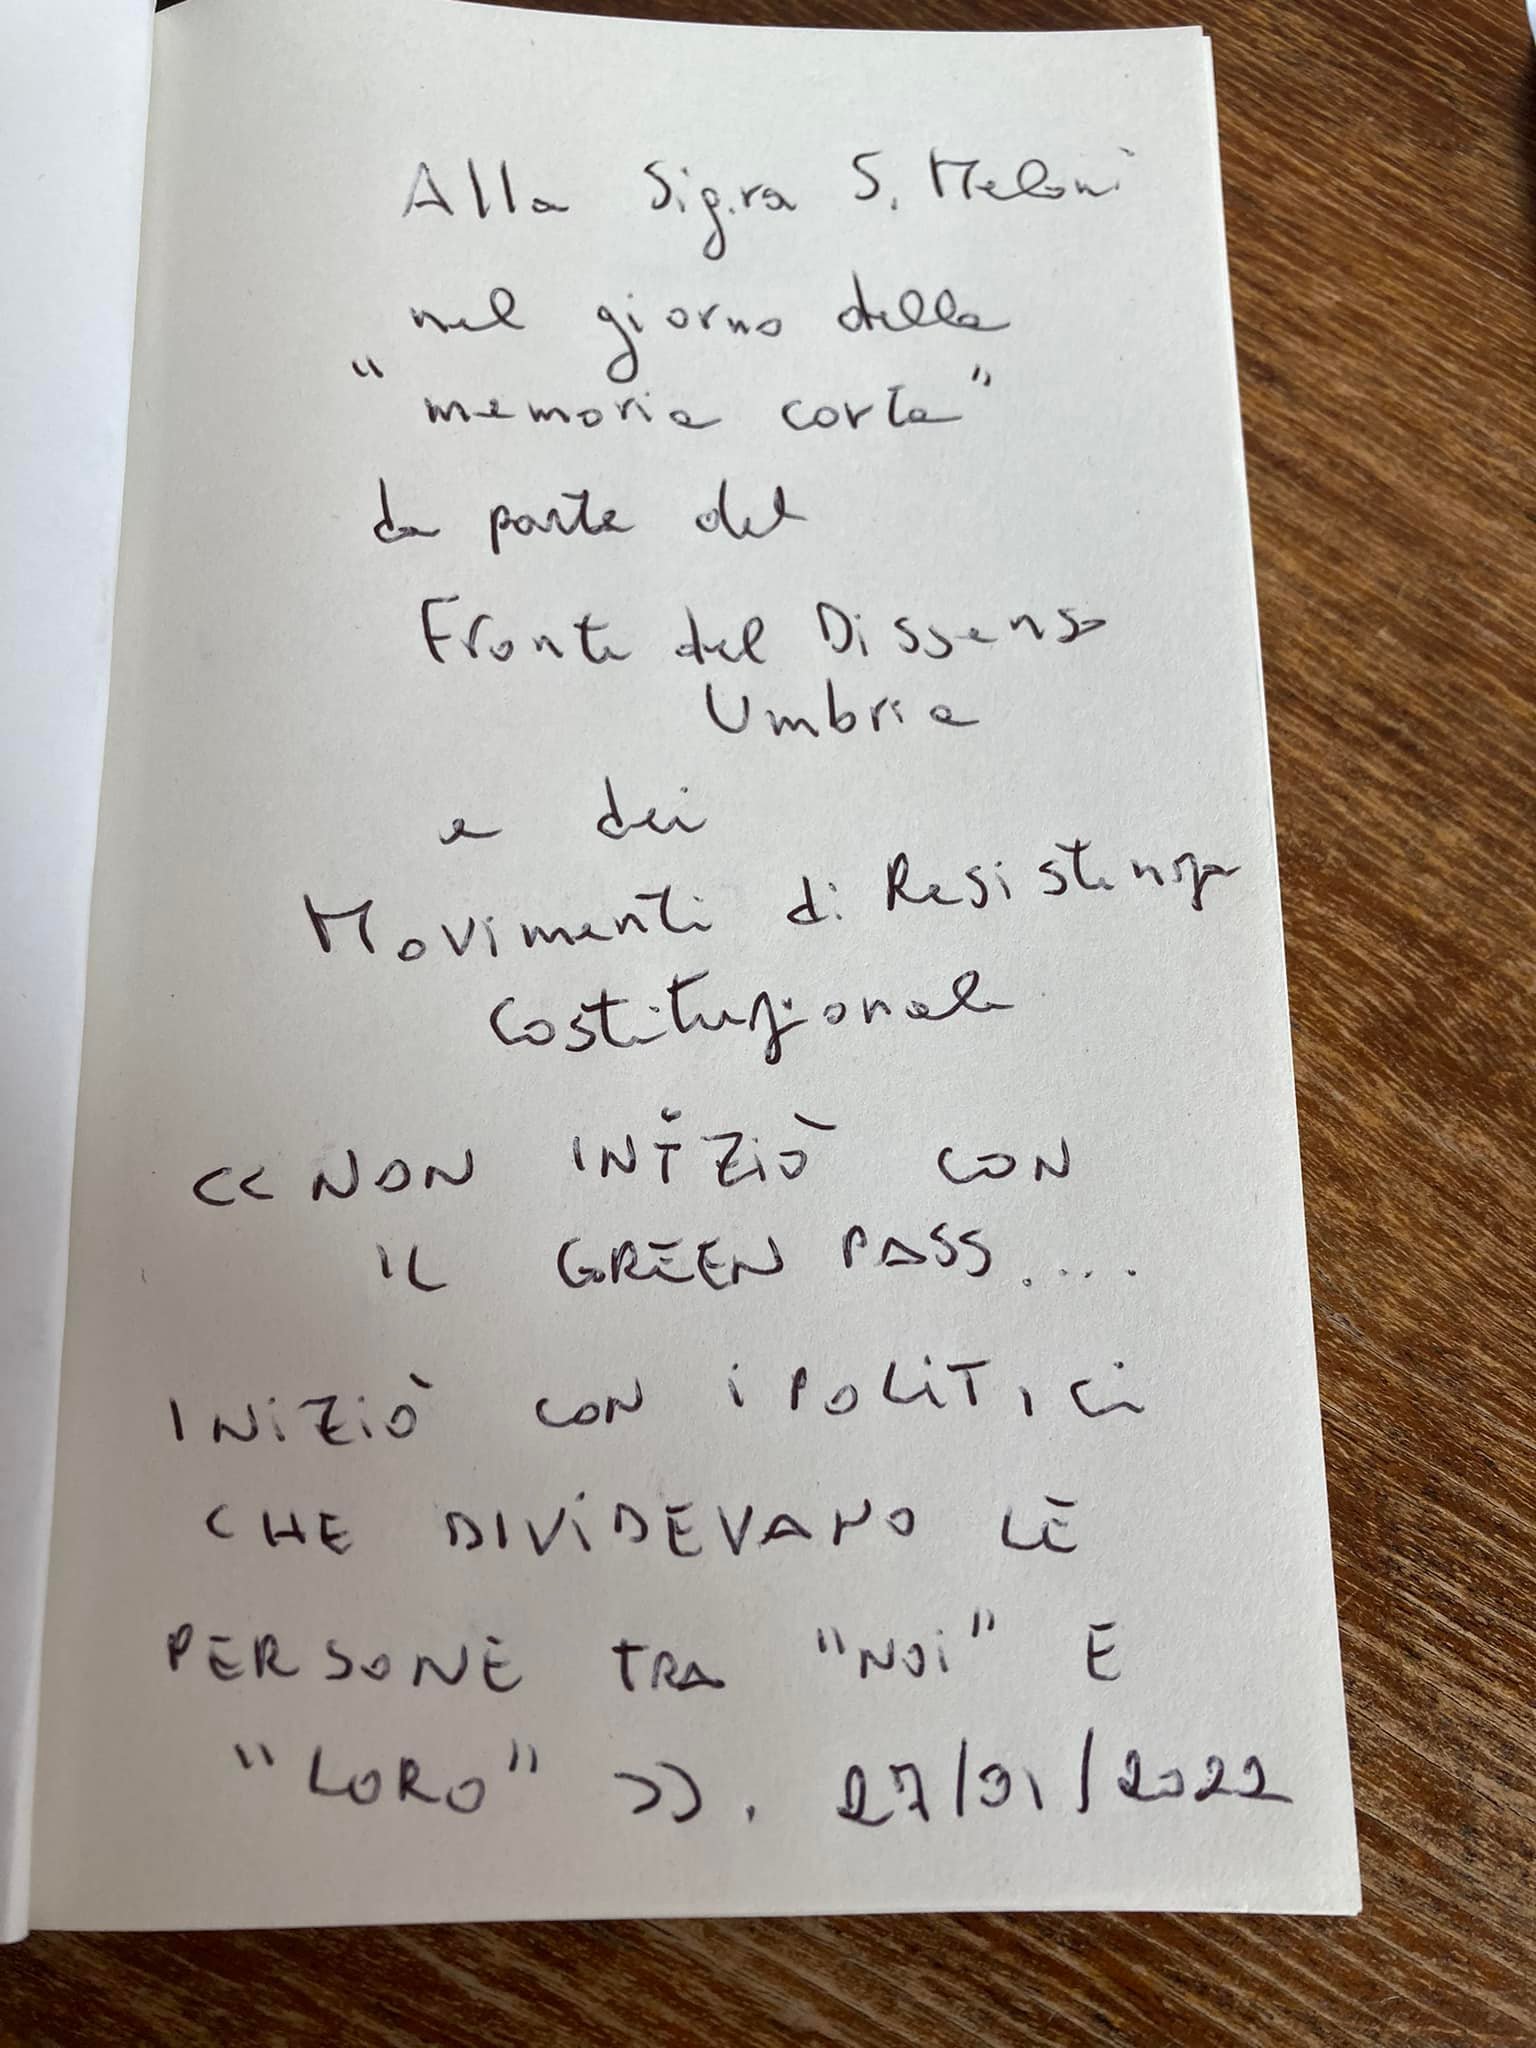 Alla Sig.ra S. Meloni
nel giorno della
"memoria corta"
da parte del
Fronte del Dissenso
Umbria
e dei
Movimenti di Resistenza
Costituzionale
<<NON INIZIÒ CON
IL GREEN PASS....
INIZIÒ CON I POLITICI
CHE DIVIDEVANO LE
PERSONE TRA "NOI" E
"LORO">>. 27/01/2022